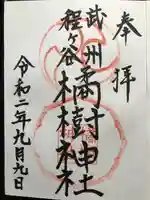 奉拝
武州
程ヶ谷
橘樹神社
令和二年九月九日